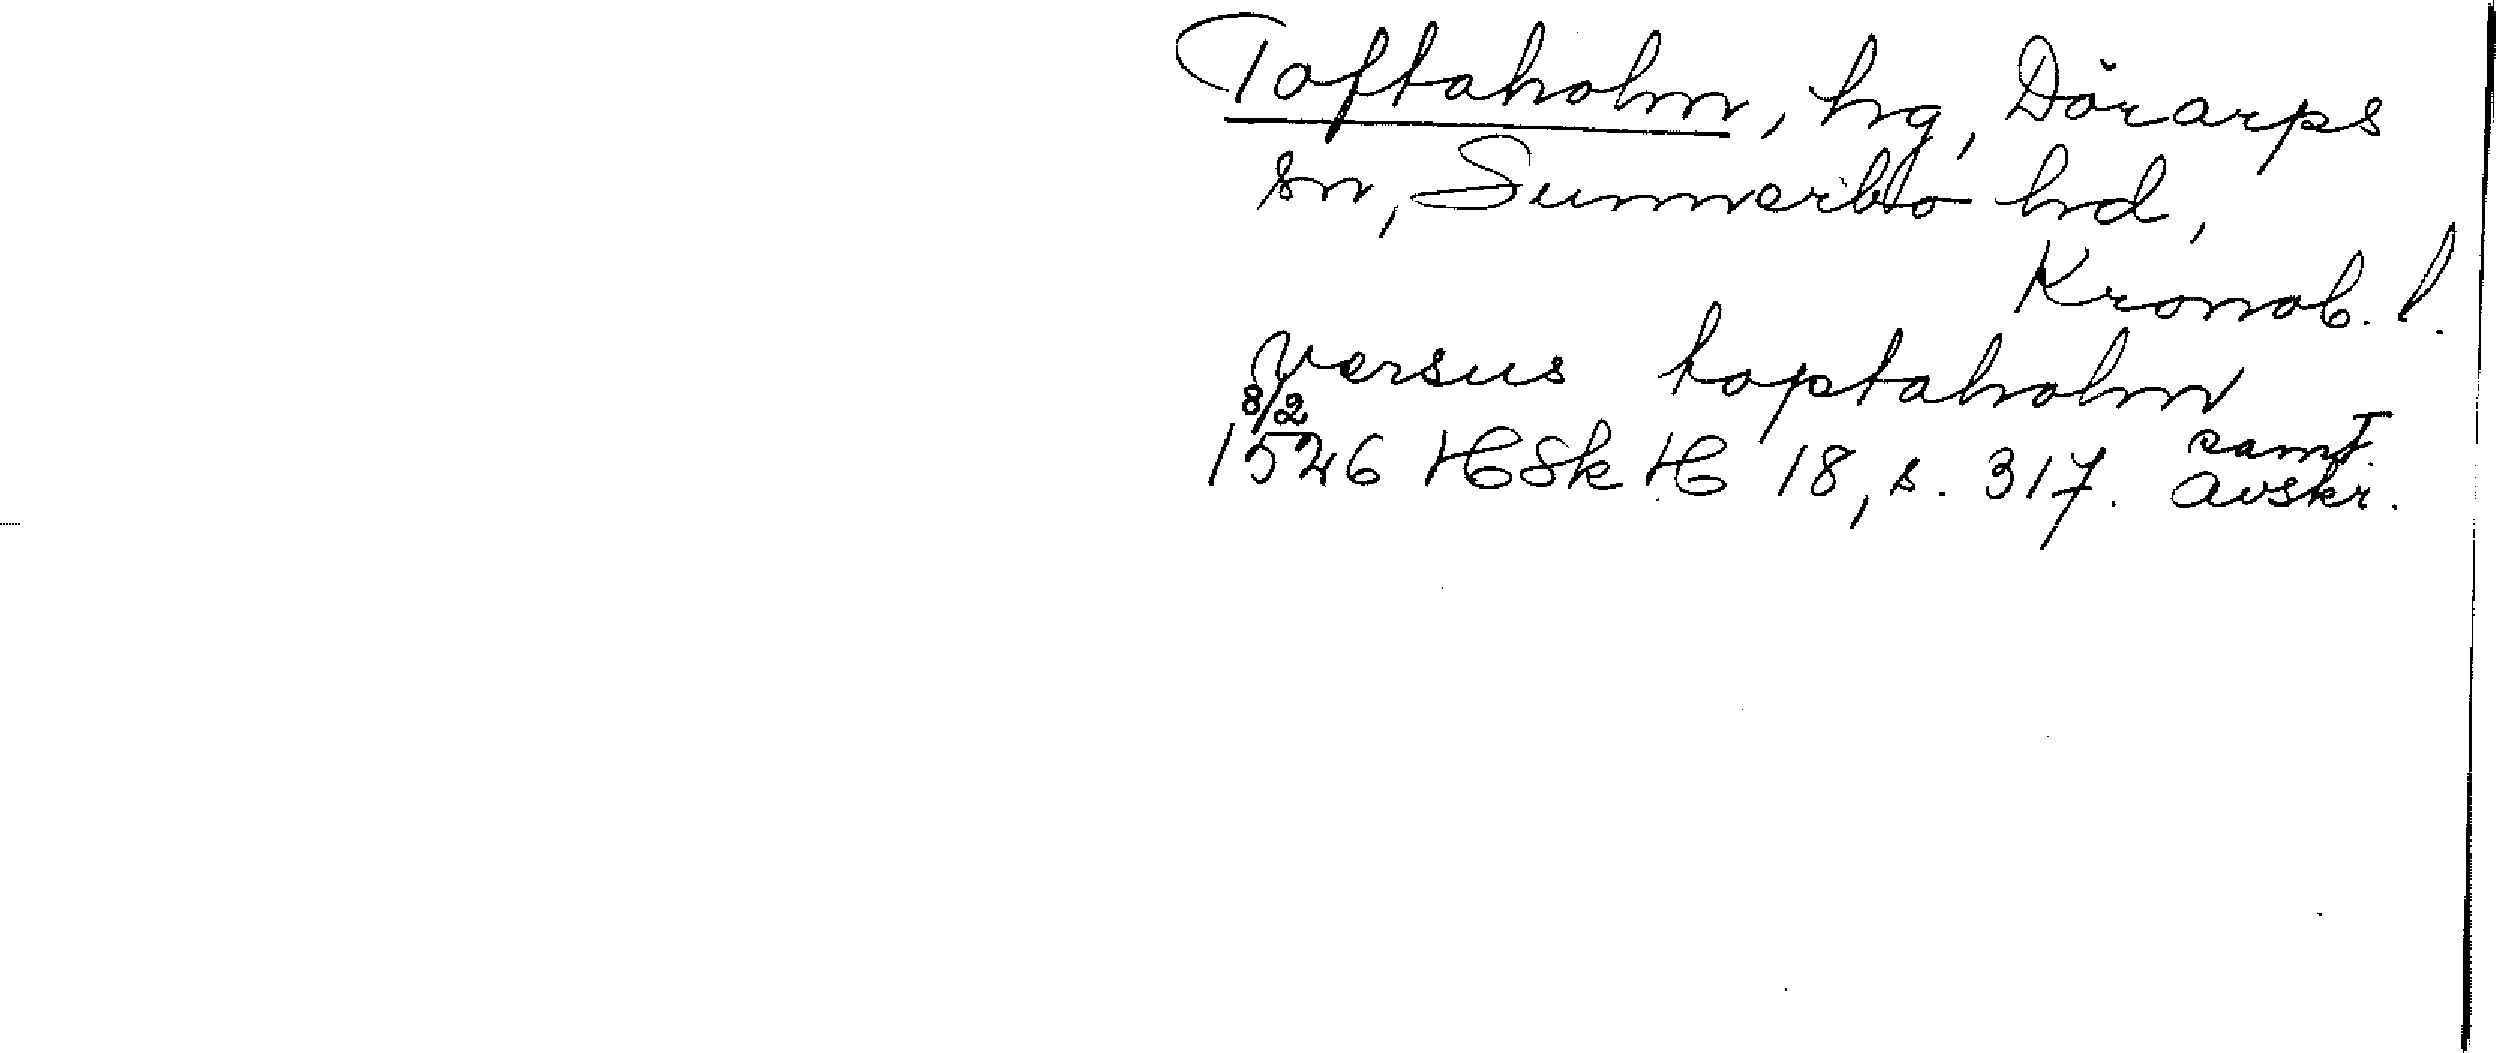 Toftaholm, hg, Dörarps
sn, Sunnerbo hd,
Kronob. l.
versus toptaholm
8/2 1526 HSkH 18, s. 317. samt. avskr.